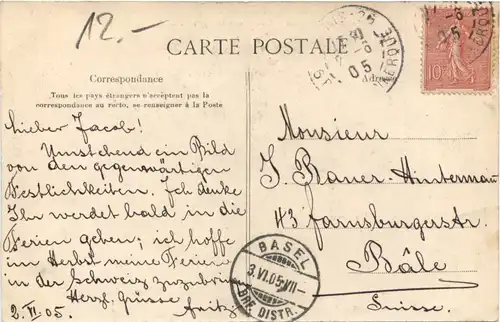 12.-
CARTE POSTALE
Correspondance
Tous les pays étrangers n'acceptent pas la
correspondance au recto, se renseigner à la Poste
Adresse
10
05
Lieber Jacob!
Umstehend ein Bild
von den gegenwärtigen
Festlichkeiten. Ich denke
Ihr werdet bald in die
Ferien gehen; ich hoffe
im Herbst meine Ferien
in der Schweiz zuzubringen
Herzl. Grüsse
2. VI. 05. Fritz
Monsieur
J. Bauer-Hinterman
43 Farnsburgerstr.
Bâle
Suisse.
BASEL
3.VI.05.VII-
BRF. DISTR.